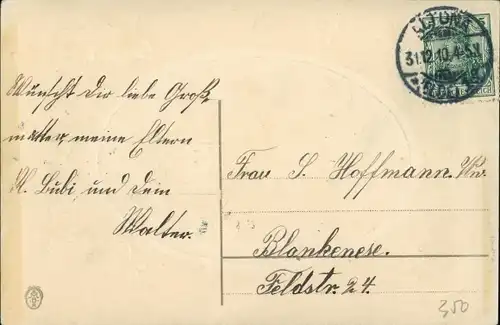 ALTONA
31.12.10.4-5N
Wünscht Dir liebe Groß-
mutter, meine Eltern
M. Bubi, und dein
Walter.
Frau S. Hoffmann. Ww.
Blankenese.
Feldstr. 24.
350